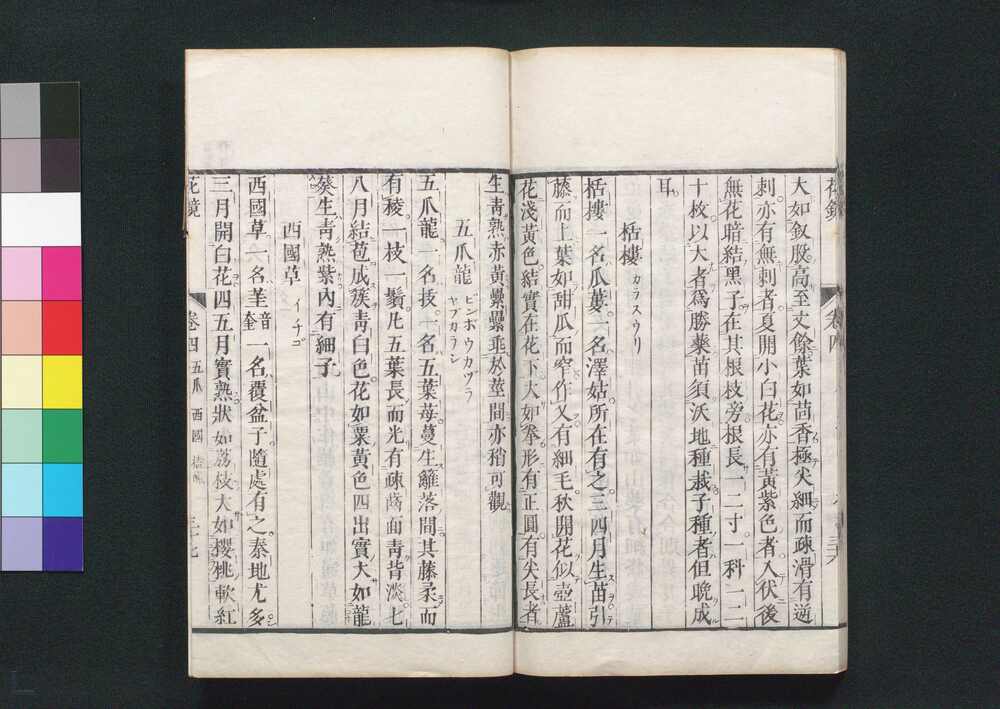 大如釵股高至丈餘葉如茴香極尖細而疎滑有逆
刺亦有無刺者夏開小白花亦有黃紫色者入伏後
無花暗結黑子在其根枝旁根長一二寸一科一二
十枚以大者爲勝藥苗須沃地種栽子種者但晚成
耳
栝樓 カラスウリ
栝樓一名瓜蔞一名澤姑所在有之三四月生苗引
藤而上葉如甜瓜而窄作叉有細毛秋開花似壺蘆
花淺黃色結實在花下大如拳形有正圓有尖長者
生靑熟赤黃纍纍垂於莖間亦稍可觀
五爪龍 ビンボウカヅラ ヤブカラシ
五爪龍一名拔一名五葉莓蔓生籬落間其藤柔而
有稜一枝一鬚凡五葉長而光有疎齒面靑背淡七
八月結苞成簇靑白色花如粟黃色四出實大如龍
葵生靑熟紫內有細子
西國草 イチゴ
西國草一名堇音奎一名覆盆子隨處有之秦地尤多
三月開白花四五月實熟狀如荔枝大如櫻桃軟紅
花鏡 卷四 五爪 西國 三十七